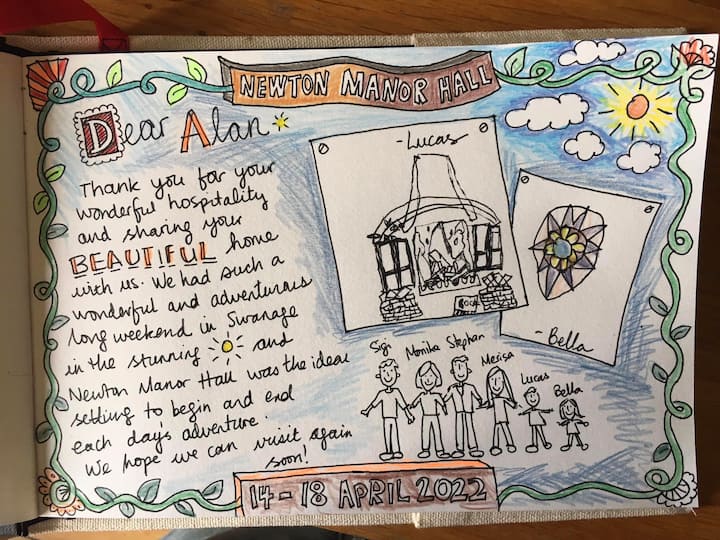 NEWTON MANOR HALL
Dear Alan
Thank you for your
wonderful hospitality
and sharing your
BEAUTIFUL home
with us. We had such a
wonderful and adventurous
long weekend in Swanage
in the stunning and
Newton Manor Hall was the ideal
setting to begin and end
each day's adventure.
We hope we can visit again
soon!
-Lucas
-Bella
Sigi Monika Stephan Merisa Lucas Bella
14-18 APRIL 2022